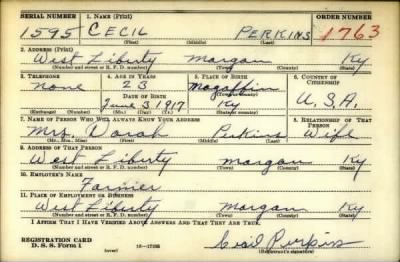 SERIAL NUMBER 1. NAME (Print) ORDER NUMBER
1595 CECIL PERKINS 1763
(First) (Middle) (Last)
2. ADDRESS (Print)
West Liberty Morgan Ky
(Number and street or R. F. D. number) (Town) (County) (State)
3. TELEPHONE 4. AGE IN YEARS 5. PLACE OF BIRTH 6. COUNTRY OF CITIZENSHIP
None 23 Magoffin
DATE OF BIRTH (Town or county)
June 3 1917 Ky U.S.A.
(Exchange) (Number) (Mo.) (Day) (Yr.) (State or country)
7. NAME OF PERSON WHO WILL ALWAYS KNOW YOUR ADDRESS 8. RELATIONSHIP OF THAT PERSON
Mrs. Dorah Perkins Wife
(Mr., Mrs., Miss) (First) (Middle) (Last)
9. ADDRESS OF THAT PERSON
West Liberty Morgan Ky
(Number and street or R. F. D. number) (Town) (County) (State)
10. EMPLOYER'S NAME
Farmier
11. PLACE OF EMPLOYMENT OR BUSINESS
West Liberty Morgan Ky
(Number and street or R. F. D. number) (Town) (County) (State)
I AFFIRM THAT I HAVE VERIFIED ABOVE ANSWERS AND THAT THEY ARE TRUE.
REGISTRATION CARD
D. S. S. Form 1 (over) Cecil Perkins
(Registrant's signature)